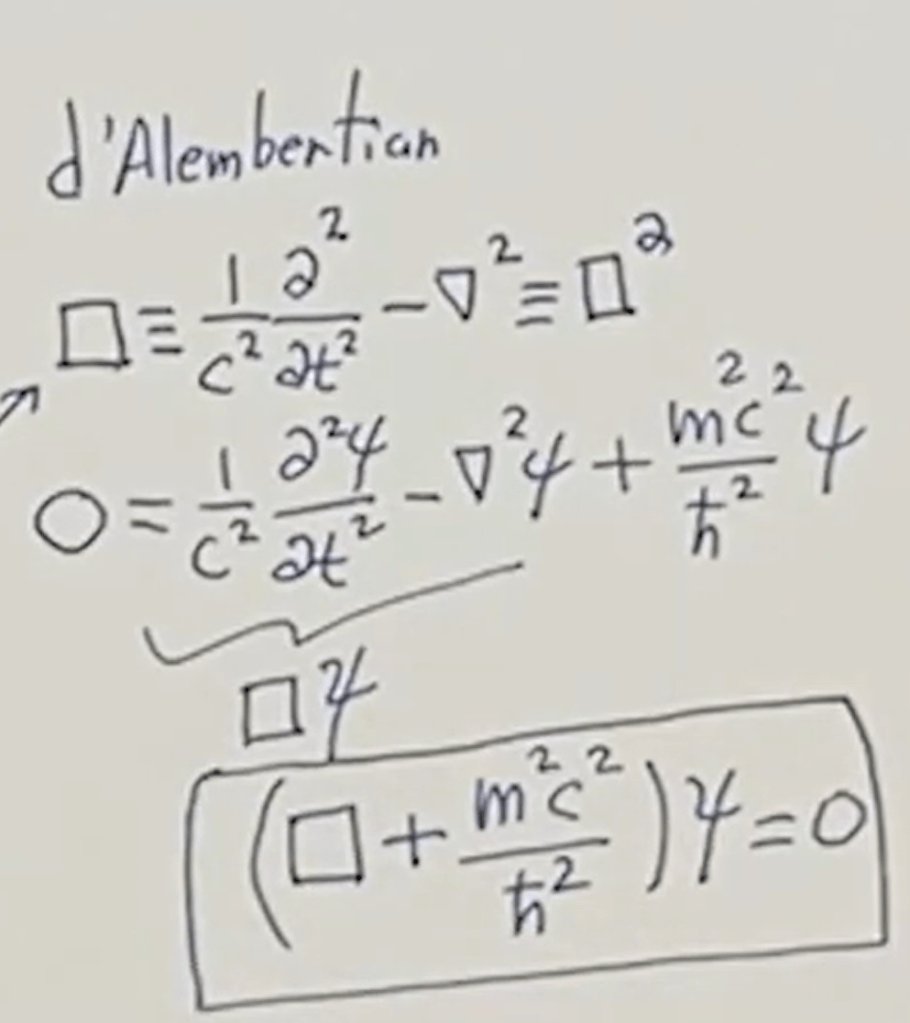 d'Alembertian
□ ≡ 1/c² ∂²/∂t² - ∇² ≡ □²
0 = 1/c² ∂²ψ/∂t² - ∇²ψ + m²c²/ħ² ψ
□ψ
(□ + m²c²/ħ²)ψ = 0